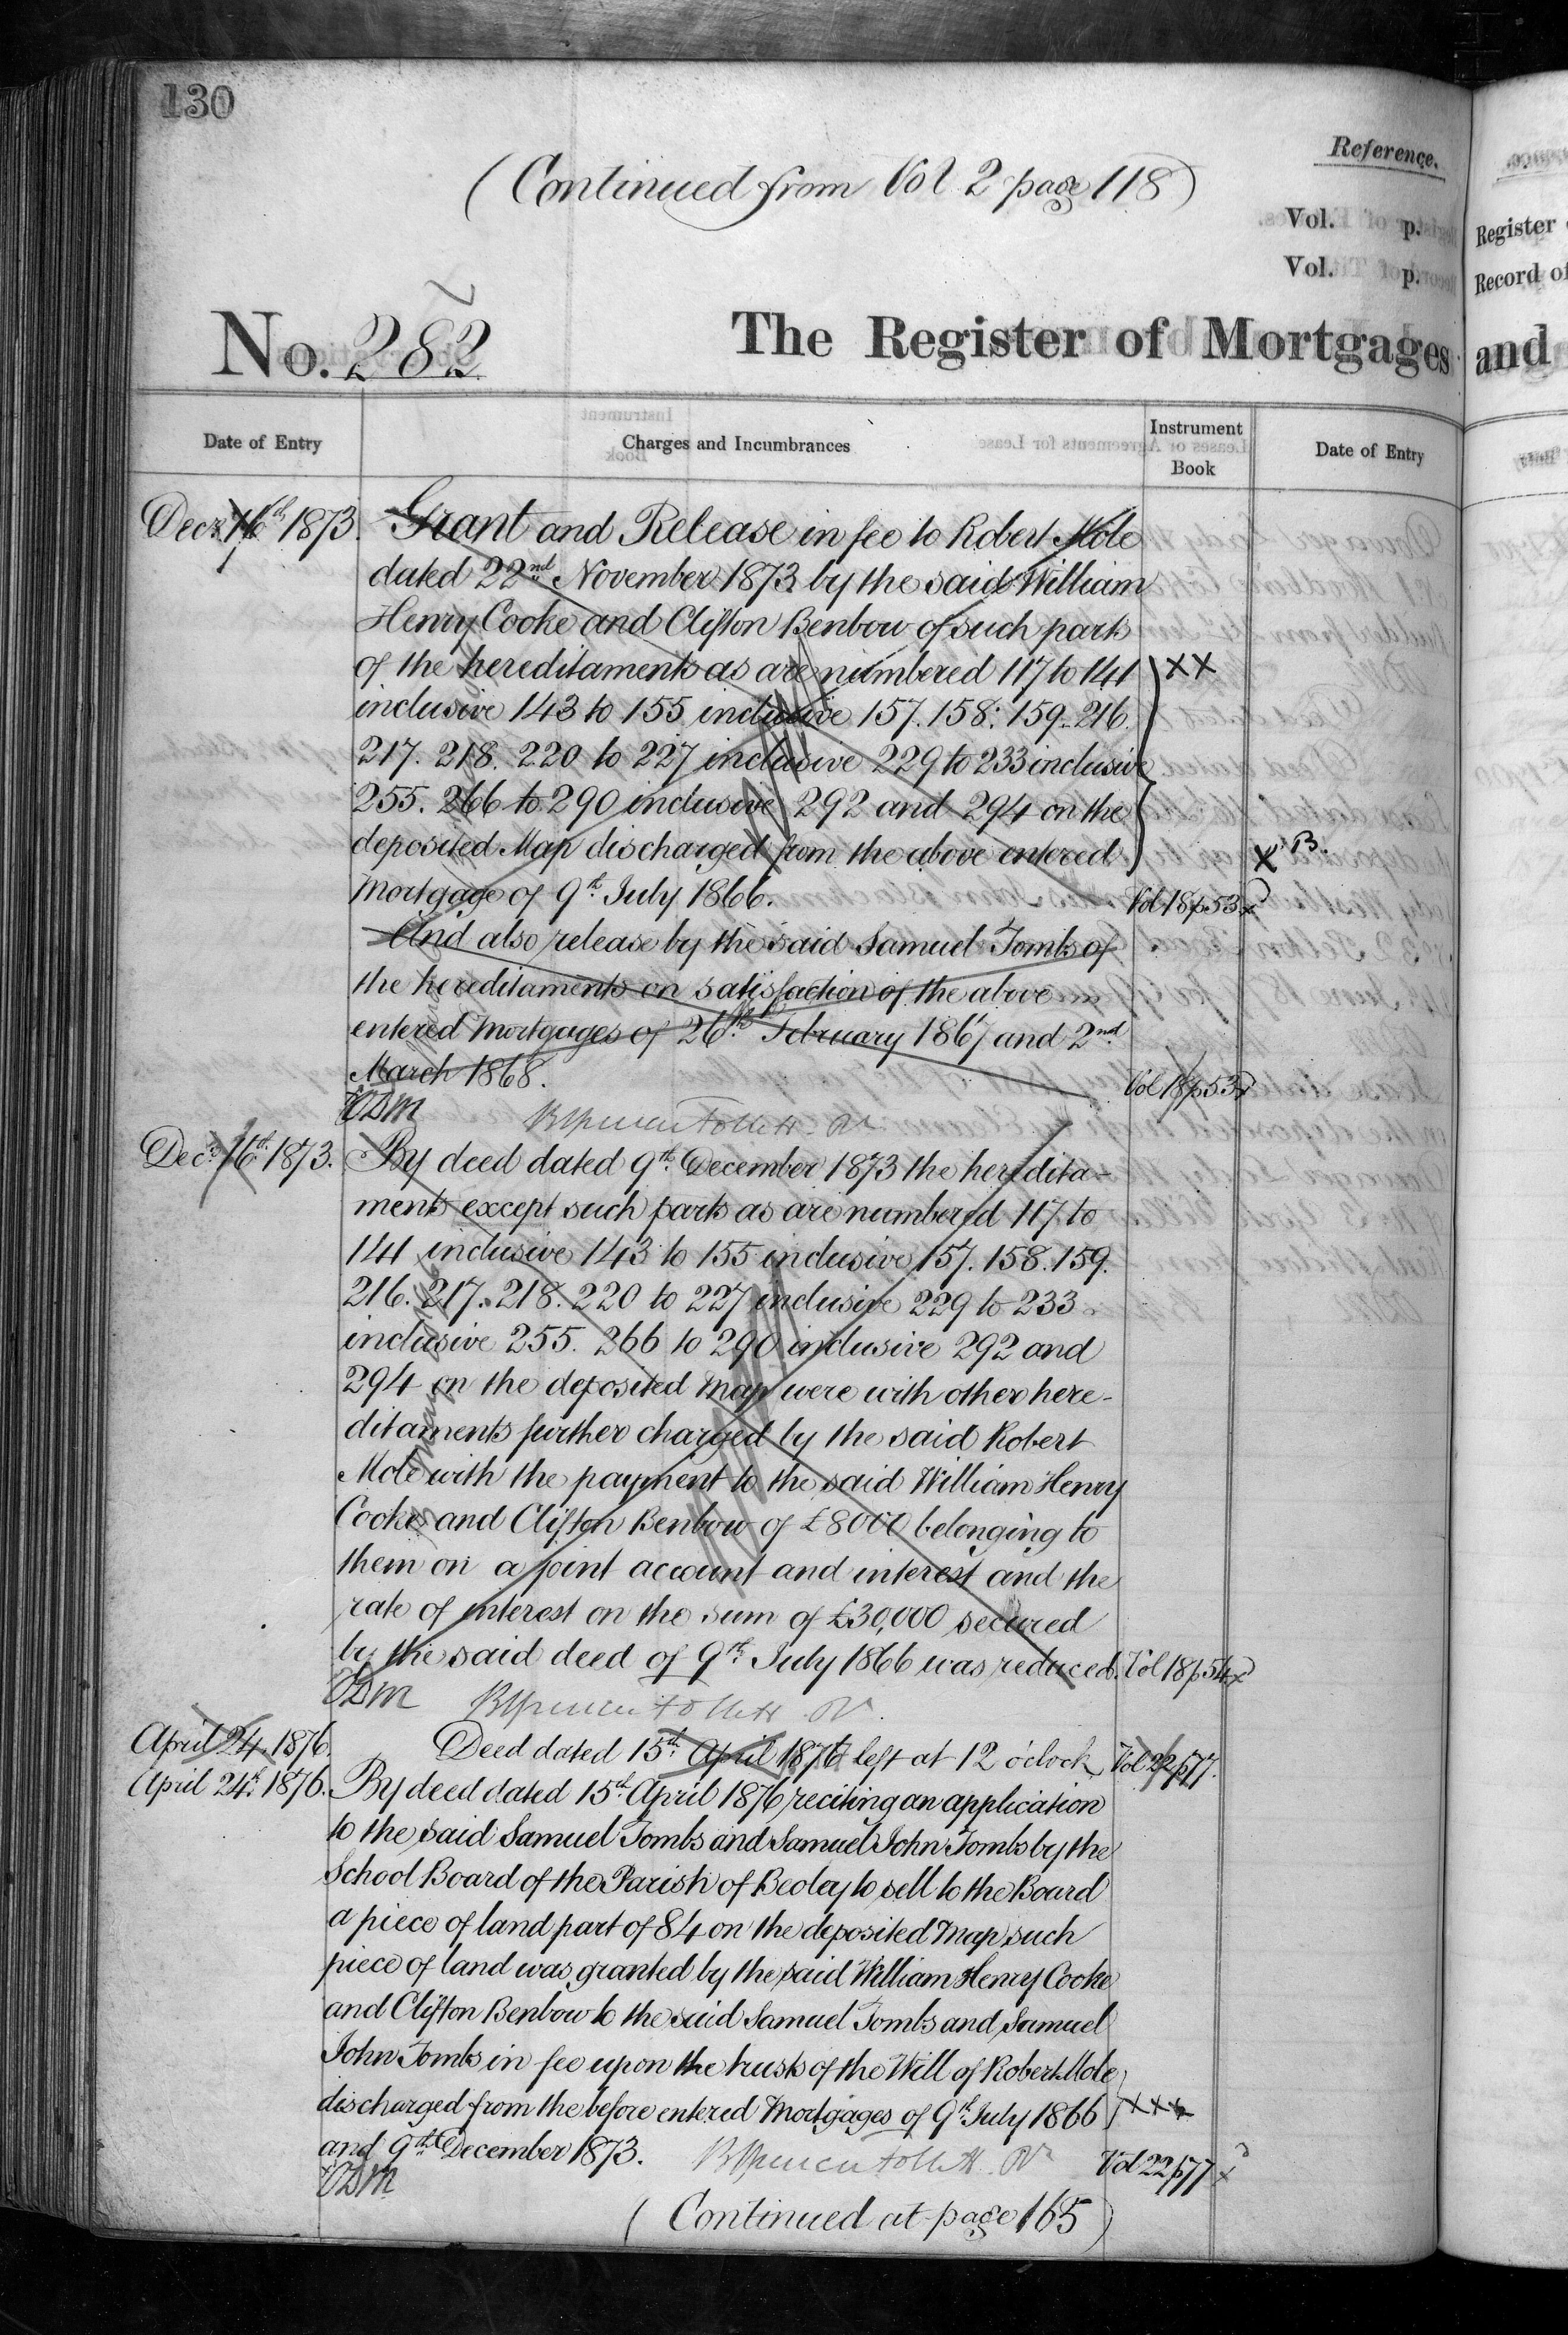 130
(Continued from Vol 2 page 118)
Reference.
Vol. p.
Vol. p.
No. 282
The Register of Mortgages
and
Register
Record of
Date of Entry
Charges and Incumbrances
Instrument Book
Date of Entry
Decr 16th 1873. Grant and Release in fee to Robert Mole
dated 22nd November 1873 by the said William
Henry Cooke and Clifton Benbow of such parts
of the hereditaments as are numbered 117 to 141 XX
inclusive 143 to 155 inclusive 157. 158. 159. 216.
217. 218. 220 to 227 inclusive 229 to 233 inclusive
255. 266 to 290 inclusive 292 and 294 on the
deposited Map discharged from the above entered X B.
Mortgage of 9th July 1866. Vol 18 p 53 x
And also release by the said Samuel Tombs of
the hereditaments on satisfaction of the above
entered Mortgages of 26th February 1867 and 2nd
March 1868. Vol 18 p 53 x
Decr 16th 1873. By deed dated 9th December 1873 the heredita-
ments except such parts as are numbered 117 to
141 inclusive 143 to 155 inclusive 157. 158. 159.
216. 217. 218. 220 to 227 inclusive 229 to 233
inclusive 255. 266 to 290 inclusive 292 and
294 on the deposited Map were with other here-
ditaments further charged by the said Robert
Mole with the payment to the said William Henry
Cooke and Clifton Benbow of £8000 belonging to
them on a joint account and interest and the
rate of interest on the sum of £30,000 secured
by the said deed of 9th July 1866 was reduced. Vol 18 p 54 x
April 24. 1876. Deed dated 15th April 1876 left at 12 o'clock Vol 22 p 77.
April 24th 1876. By deed dated 15th April 1876 reciting an application
to the said Samuel Tombs and Samuel John Tombs by the
School Board of the Parish of Beoley to sell to the Board
a piece of land part of 84 on the deposited Map such
piece of land was granted by the said William Henry Cooke
and Clifton Benbow to the said Samuel Tombs and Samuel
John Tombs in fee upon the trusts of the Will of Robert Mole
discharged from the before entered Mortgages of 9th July 1866 XXX
and 9th December 1873. Vol 22 p 77 x
(Continued at page 165)